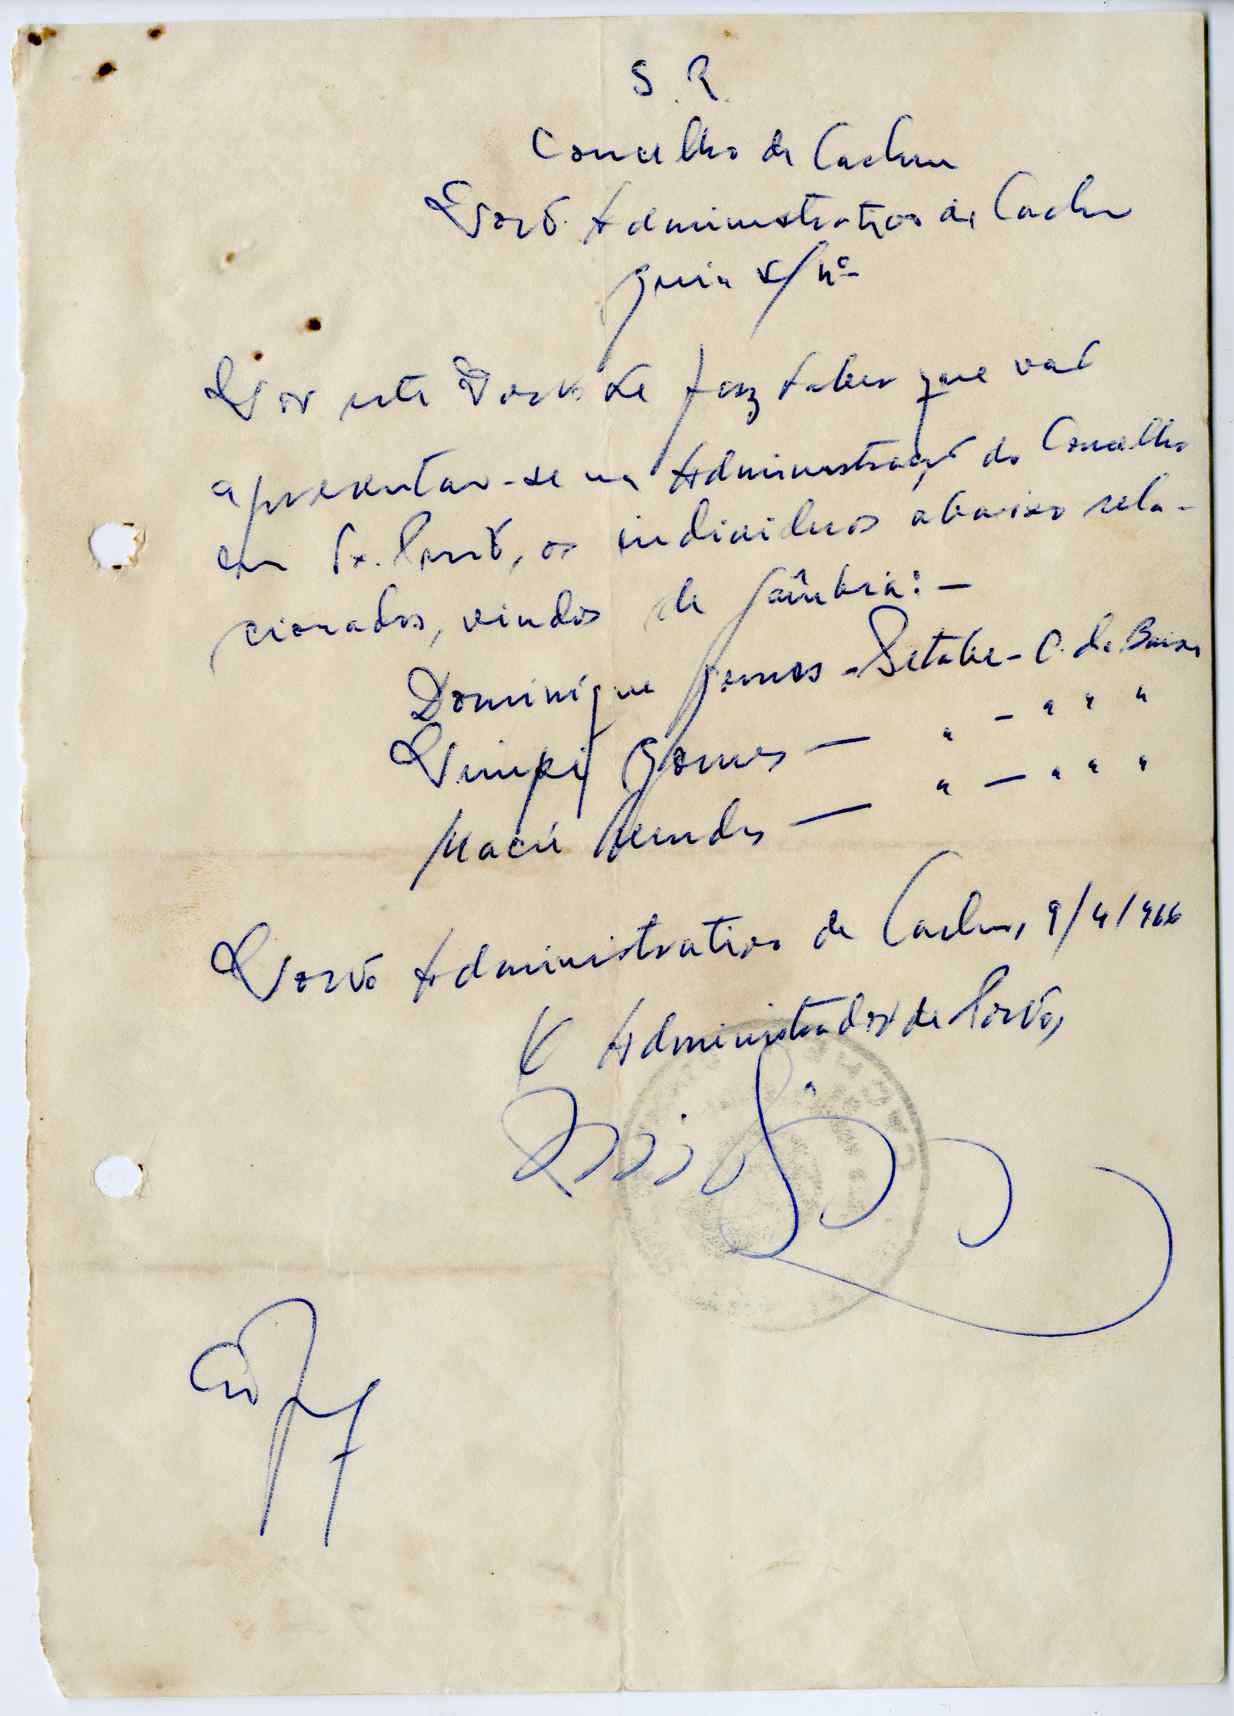 S. R.
Concelho de Cacheu
Posto Administrativo de Cacheu
Guia s/nº
Por este Posto se faz saber que vão
apresentar-se na Administração do Concelho
em os individuos abaixo rela-
cionados, vindos de Gâmbia: —
Dominique Gomes - Betabe - C. de
Gomes — " — " " "
Mendes — " — " " "
Posto Administrativo de Cacheu, 9/4/966
O Administrador de Posto,